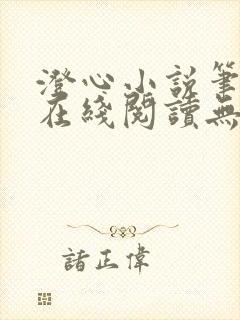 澄心小説筆
在綫閱讀無
諸正偉